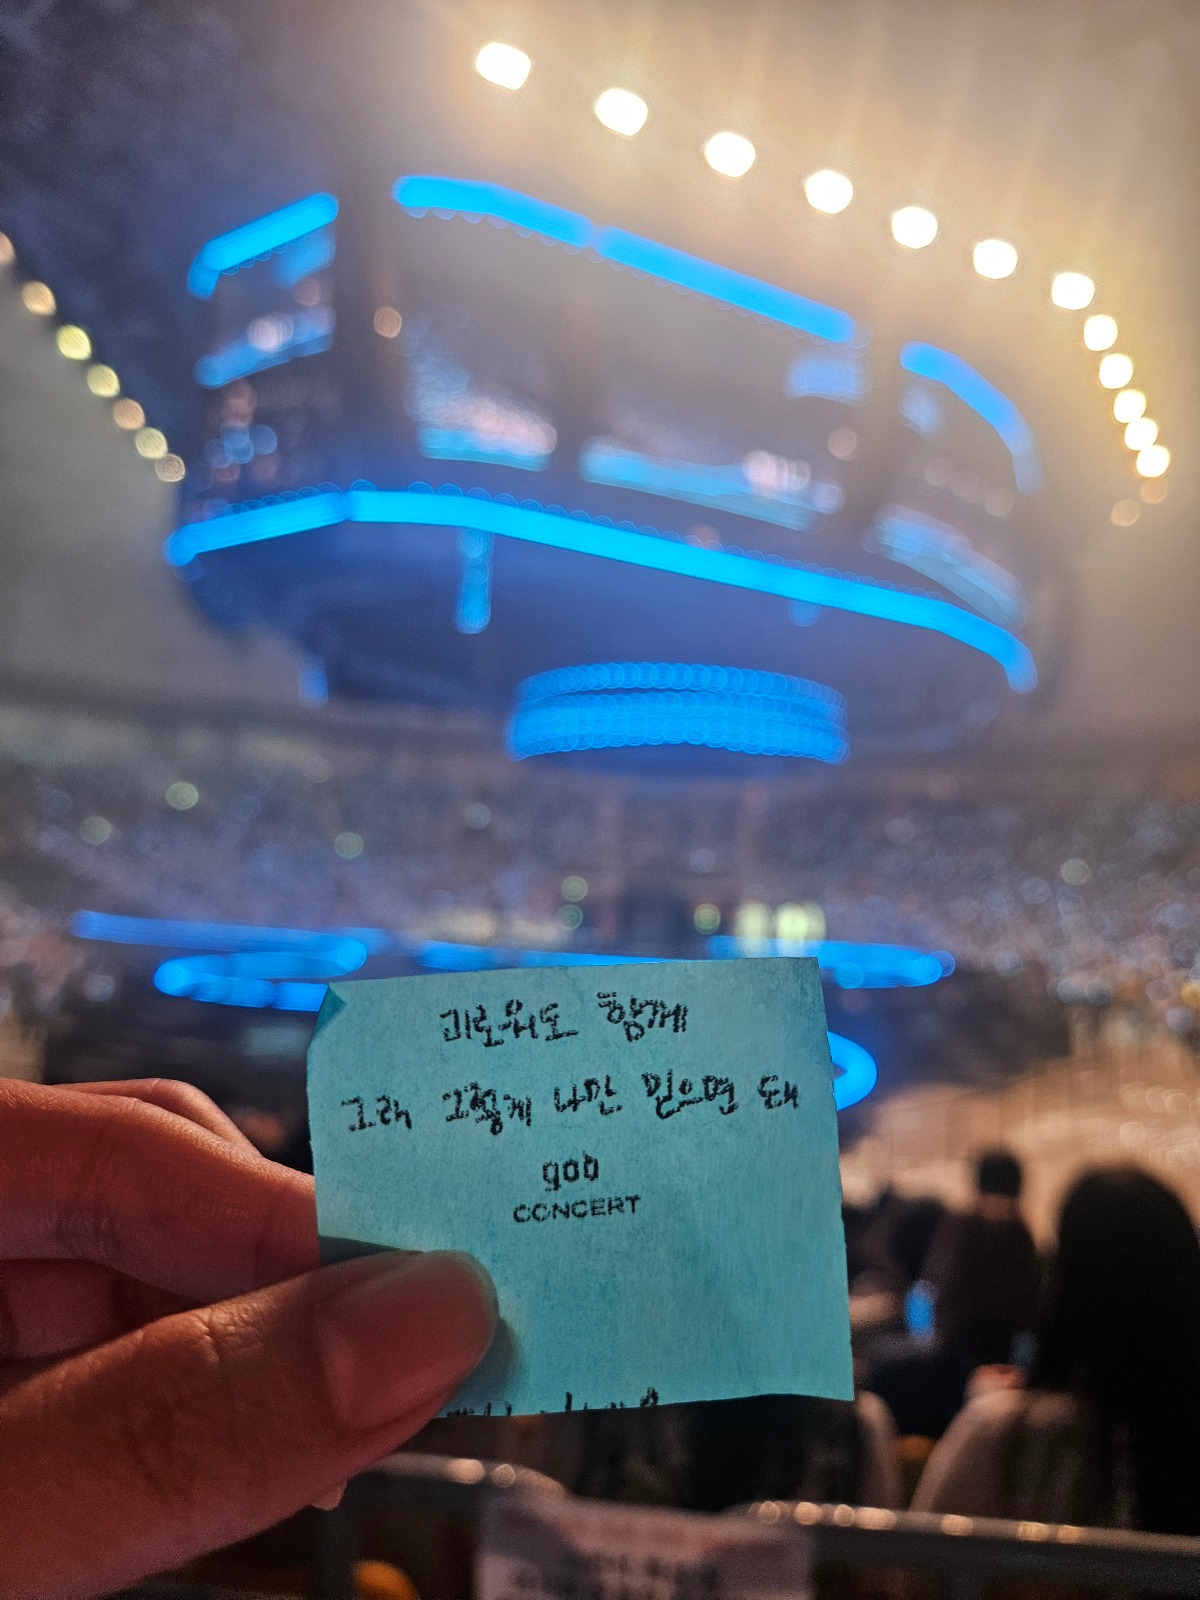 괴로워도 함께
그래 그렇게 나만 믿으면 돼
god
CONCERT